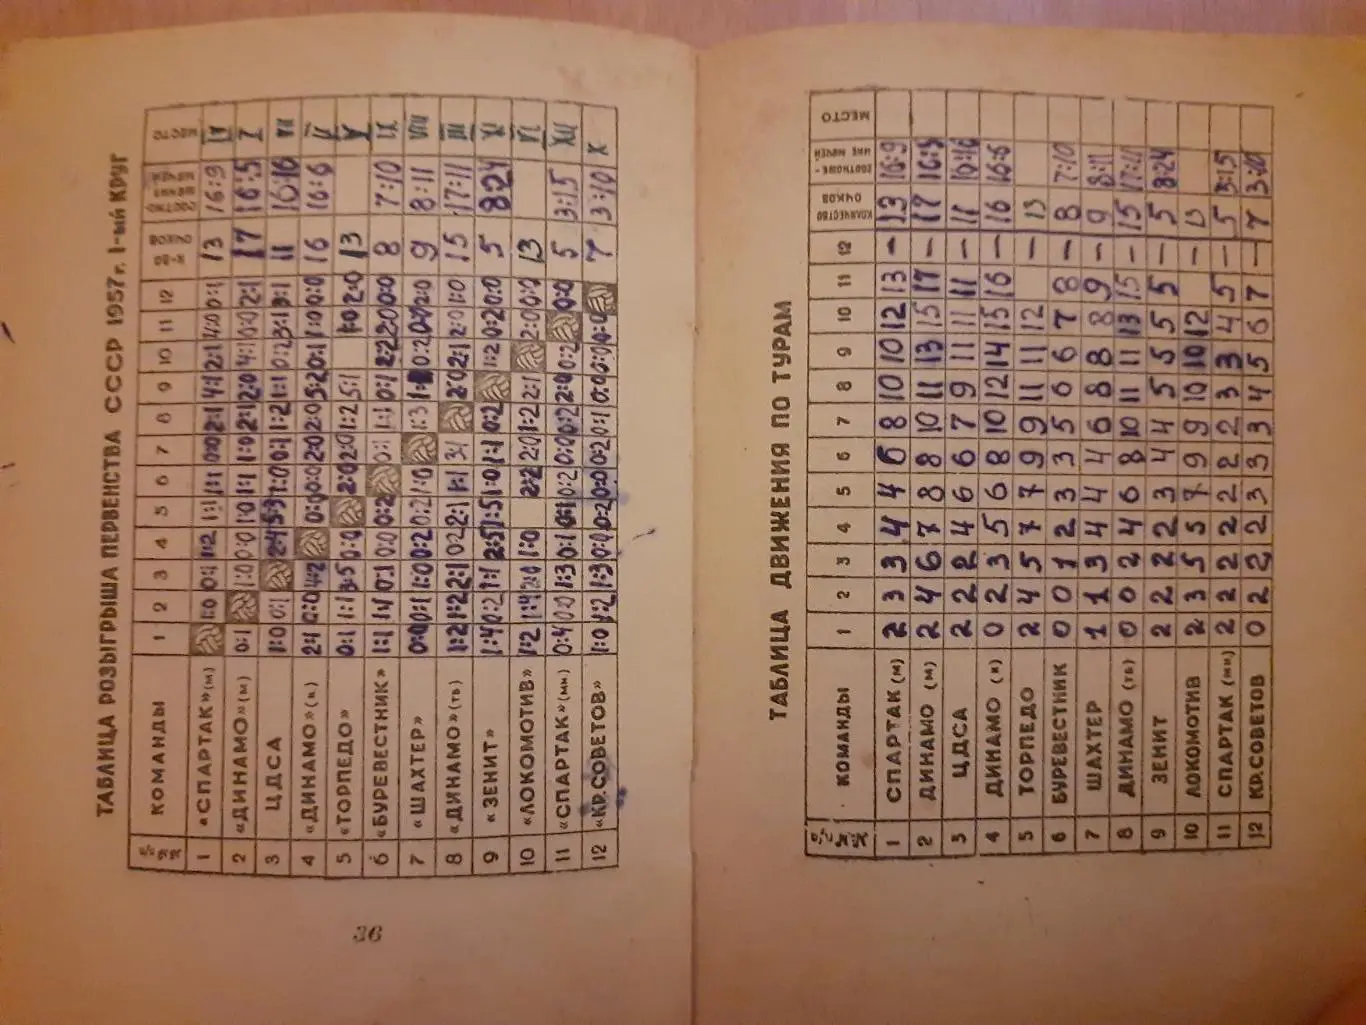 ТАБЛИЦА РОЗЫГРЫША ПЕРВЕНСТВА СССР 1957 г. I-ый КРУГ
№№ п/п КОМАНДЫ 1 2 3 4 5 6 7 8 9 10 11 12 МЕСТО
1 «СПАРТАК» (м) 1:0 0:1 1:2 1:1 1:1 0:0 2:1 4:1 2:1 4:0 0:1 13 16:9 IV
2 «ДИНАМО» (м) 0:1 1:0 0:0 1:0 1:1 1:0 2:1 2:0 4:1 0:0 2:1 17 16:5 I
3 ЦДСА 1:0 0:1 2:4 5:3 1:0 0:1 1:2 1:1 0:2 3:1 3:1 11 16:16 VII
4 «ДИНАМО» (к) 2:1 0:0 4:2 0:0 0:0 2:0 2:0 5:2 0:1 1:0 0:0 16 16:6 II
5 «ТОРПЕДО» 0:1 1:1 3:5 0:0 2:0 2:0 1:2 5:1 1:0 2:0 13 V
6 «БУРЕВЕСТНИК» 1:1 1:1 0:1 0:0 0:2 0:1 1:1 0:1 2:2 2:0 0:0 8 7:10 IX
7 «ШАХТЕР» 0:0 0:1 1:0 0:2 0:2 1:0 1:3 0:2 0:0 2:0 9 8:11 VIII
8 «ДИНАМО» (тб) 1:2 1:2 2:1 0:2 2:1 1:1 2:0 2:1 2:0 1:0 15 17:11 III
9 «ЗЕНИТ» 1:4 0:2 1:1 2:5 1:5 1:0 1:1 0:2 1:2 0:2 0:0 5 8:24 XI
10 «ЛОКОМОТИВ» 1:2 1:4 2:0 1:0 2:2 2:0 1:2 2:1 2:0 0:0 13 VI
11 «СПАРТАК» (мн) 0:4 0:0 1:3 0:1 0:1 0:2 0:0 0:2 2:0 0:2 0:0 5 3:15 XII
12 «КР.СОВЕТОВ» 1:0 1:2 1:3 0:0 0:2 0:0 0:2 0:1 0:0 0:0 0:0 7 3:10 X
36
ТАБЛИЦА ДВИЖЕНИЯ ПО ТУРАМ
№№ п/п КОМАНДЫ 1 2 3 4 5 6 7 8 9 10 11 12 КОЛИЧЕСТВО ОЧКОВ СООТНОШЕ- НИЕ МЯЧЕЙ МЕСТО
1 СПАРТАК (м) 2 3 3 4 4 6 8 10 10 12 13 — 13 16:9
2 ДИНАМО (м) 2 4 6 7 8 8 10 11 13 15 17 — 17 16:5
3 ЦДСА 2 2 2 4 6 6 7 9 11 11 11 — 11 16:16
4 ДИНАМО (к) 0 2 3 5 6 8 10 12 14 15 16 — 16 16:6
5 ТОРПЕДО 2 4 5 7 7 9 9 11 11 12 13
6 БУРЕВЕСТНИК 0 0 1 2 3 3 5 6 6 7 8 — 8 7:10
7 ШАХТЕР 1 1 3 4 4 4 6 8 8 8 9 — 9 8:11
8 ДИНАМО (тб) 0 0 2 4 6 8 10 11 11 13 15 — 15 17:11
9 ЗЕНИТ 2 2 2 2 3 4 4 5 5 5 5 — 5 8:24
10 ЛОКОМОТИВ 2 3 5 5 7 9 9 10 10 12 — 13
11 СПАРТАК (мн) 2 2 2 2 2 2 2 3 3 4 5 — 5 3:15
12 КР.СОВЕТОВ 0 2 2 2 3 3 3 4 5 6 7 — 7 3:10